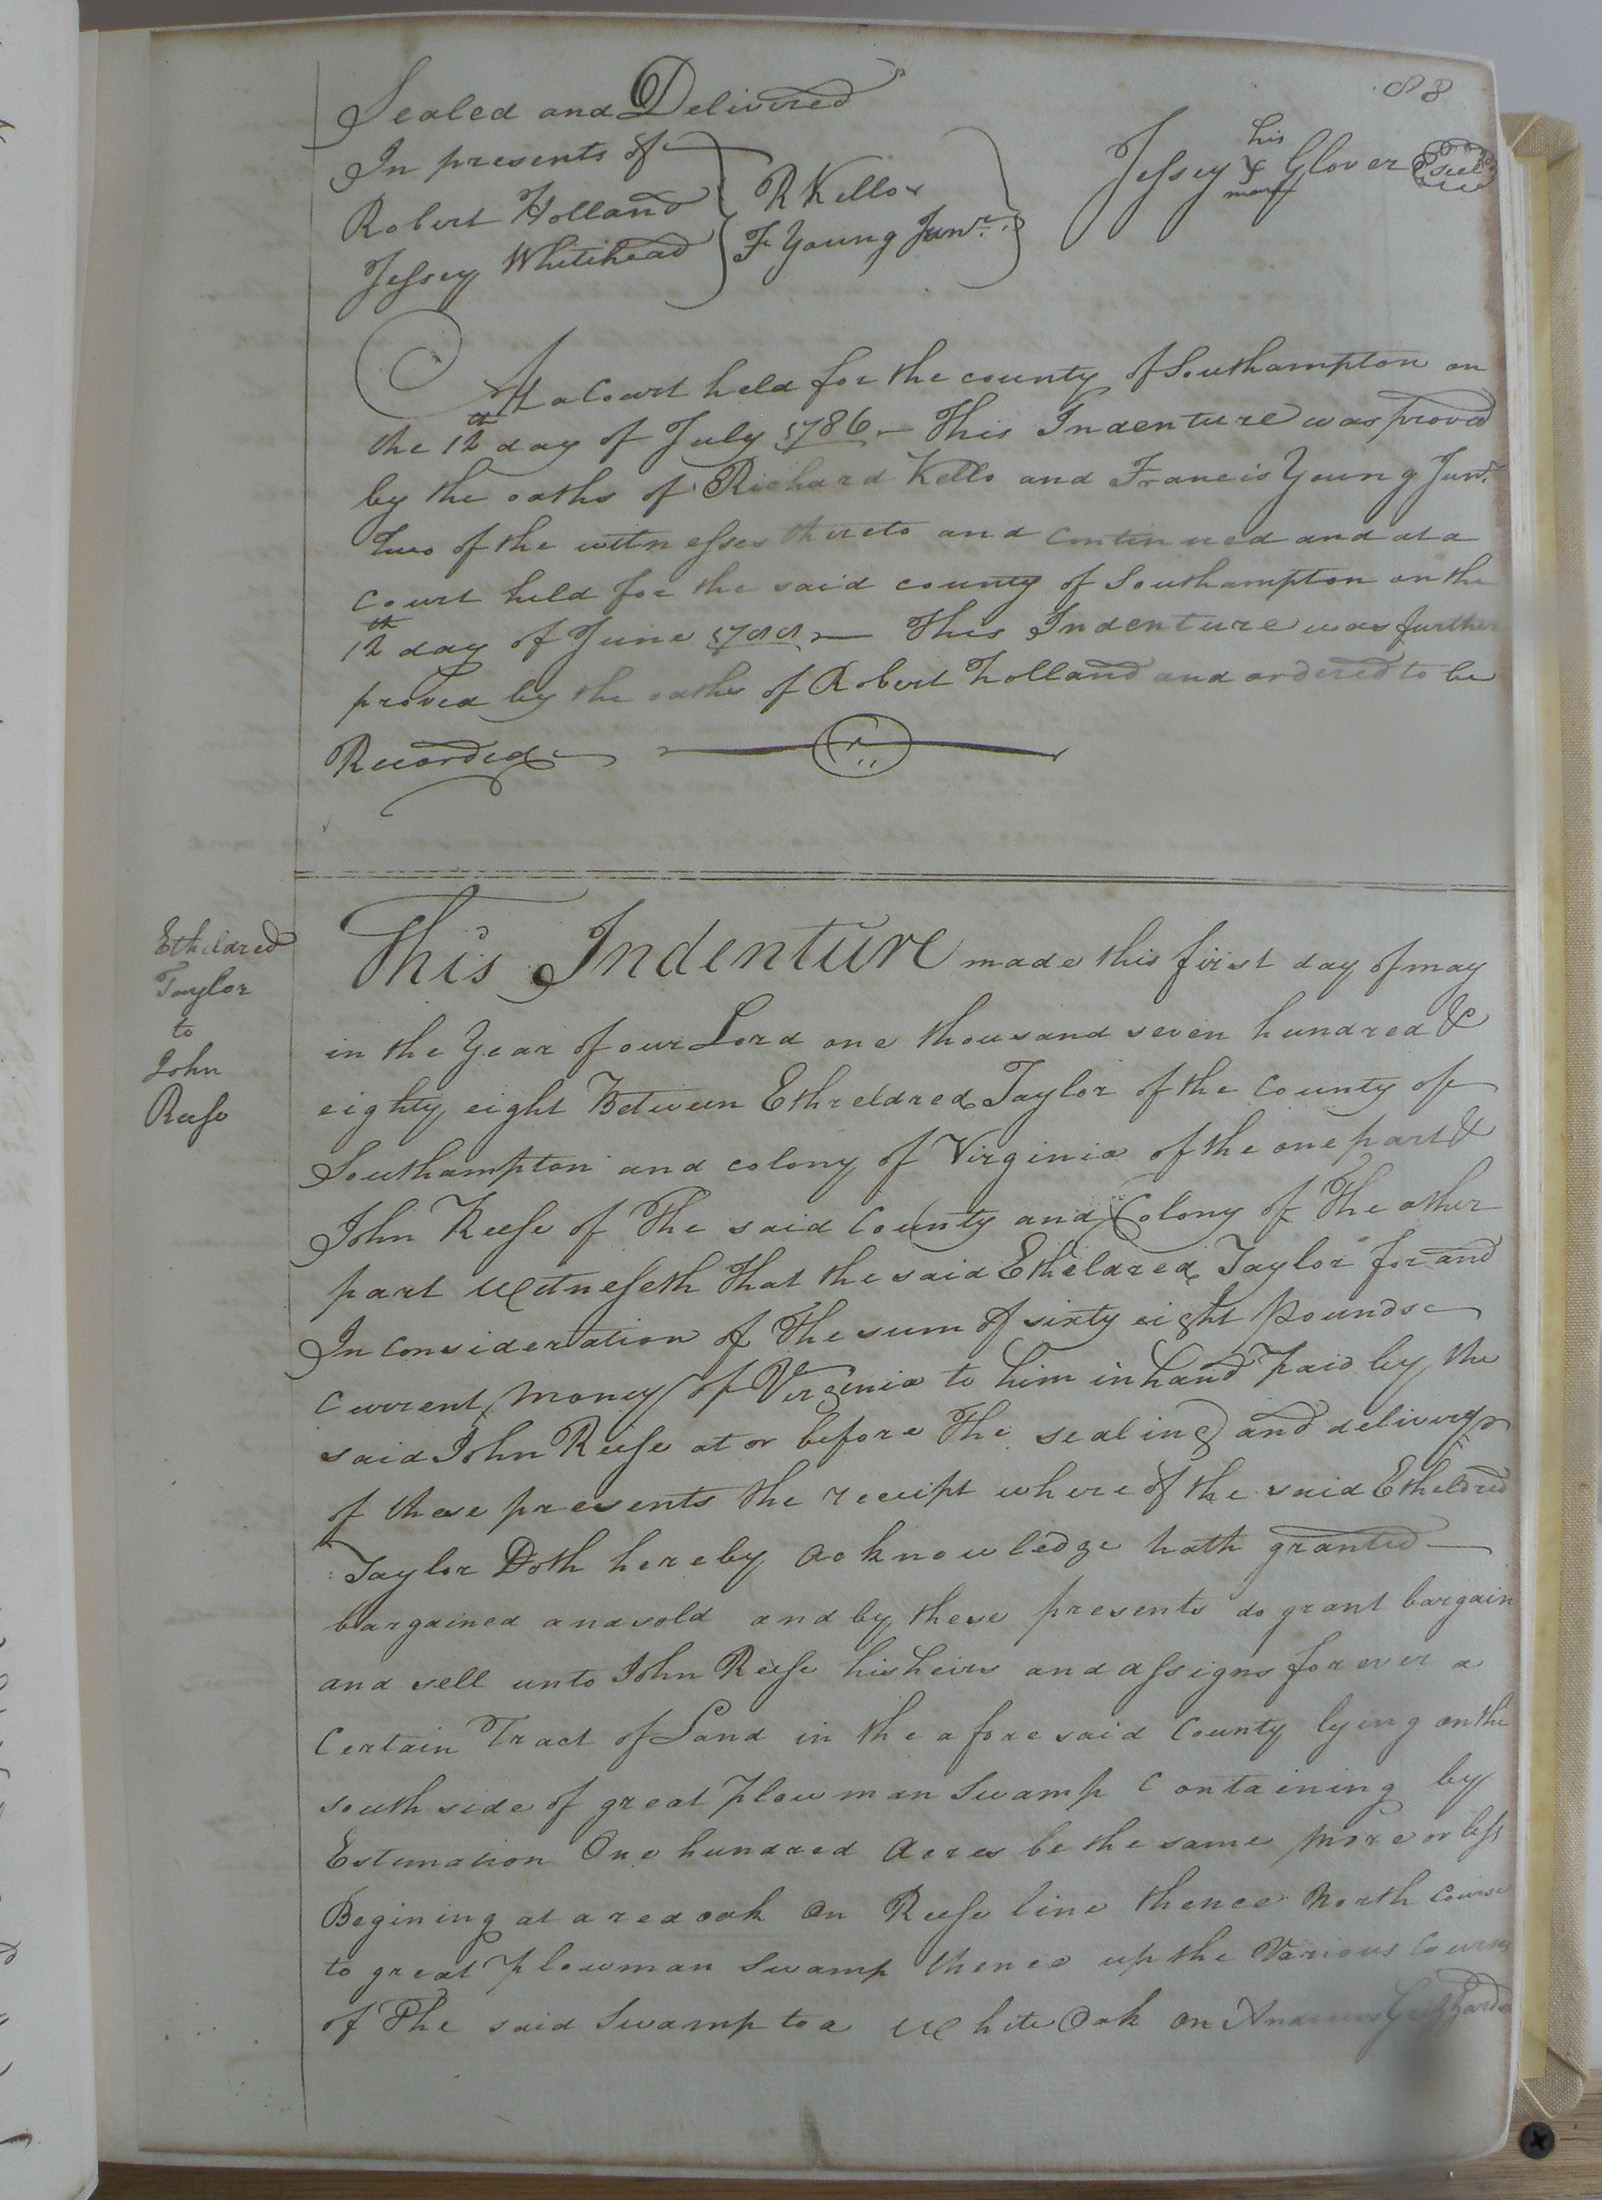 88
Sealed and Delivered
In presents of
Robert Holland
Jessey Whitehead
R Kello
F Young Junr.
his
Jessey + Glover Seal
mark
At a Court held for the county of Southampton on
the 12th day of July 1786 — This Indenture was proved
by the oaths of Richard Kello and Francis Young Junr.
two of the witnesses thereto and continued and at a
court held for the said county of Southampton on the
12th day of June 1788 — This Indenture was further
proved by the oaths of Robert Holland and ordered to be
Recorded
Etheldred
Taylor
to
John
Reese
This Indenture made this first day of may
in the Year of our Lord one thousand seven hundred &
eighty eight Between Ethreldred Taylor of the County of
Southampton and colony of Virginia of the one part &
John Reese of The said County and Colony of The other
part Witnesseth That the said Etheldred Taylor for and
In consideration of The sum of sixty eight Pounds
Current Money of Virginia to him in hand Paid by the
said John Reese at or before The sealing and delivery
of these presents the receipt where of the said Etheldred
Taylor Doth hereby acknowledge hath granted
bargained and sold and by these presents do grant bargain
and sell unto John Reese his heirs and assigns forever a
Certain Tract of Land in the afore said County lying on the
south side of great Plowman Swamp Containing by
Estimation One hundred Acres be the same More or less
Begining at a red oak On Reese line thence North Course
to great Plowman Swamp thence up the Various Courses
of The said Swamp to a White Oak on